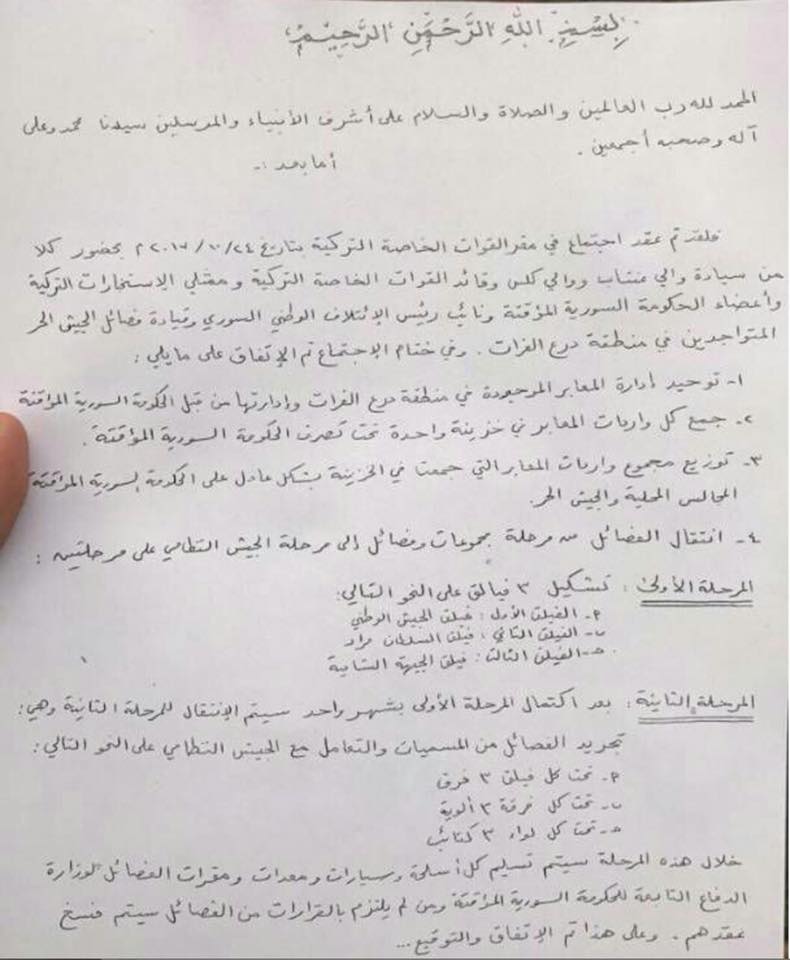 بِسْمِ اللهِ الرَّحْمَنِ الرَّحِيْمِ
الحمد لله رب العالمين والصلاة والسلام على أشرف الأنبياء والمرسلين سيدنا محمد وعلى
آله وصحبه أجمعين . أما بعد :-
فلقد تم عقد اجتماع في مقر القوات الخاصة التركية بتاريخ ٢٠١٧/١٠/٢٤ م بحضور كلا
من سيادة والي عنتاب ووالي كلس وقائد القوات الخاصة التركية وممثلي الاستخبارات التركية
وأعضاء الحكومة السورية المؤقتة ونائب رئيس الإئتلاف الوطني السوري وقيادة فصائل الجيش الحر
المتواجدين في منطقة درع الفرات . وفي ختام الإجتماع تم الإتفاق على ما يلي :
١- توحيد إدارة المعابر الموجودة في منطقة درع الفرات وإدارتها من قبل الحكومة السورية المؤقتة
٢- جمع كل واردات المعابر في خزينة واحدة تحت تصرف الحكومة السورية المؤقتة .
٣- توزيع مجموع واردات المعابر التي جمعت في الخزينة بشكل عادل على الحكومة السورية المؤقتة
المجالس المحلية والجيش الحر.
٤- انتقال الفصائل من مرحلة مجموعات وفصائل إلى مرحلة الجيش النظامي على مرحلتين :
المرحلة الأولى : تشكيل ٣ فيالق على النحو التالي:
٩- الفيلق الأول : فيلق الجيش الوطني
ب- الفيلق الثاني : فيلق السلطان مراد
ج- الفيلق الثالث : فيلق الجبهة الشامية
المرحلة الثانية : بعد اكتمال المرحلة الأولى بشهر واحد سيتم الإنتقال للمرحلة الثانية وهي :
تجريد الفصائل من المسميات والتعامل مع الجيش النظامي على النحو التالي :
٩- تحت كل فيلق ٣ فرق
ب- تحت كل فرقة ٣ ألوية
ج- تحت كل لواء ٣ كتائب
خلال هذه المرحلة سيتم تسليم كل أسلحة وسيارات ومعدات ومقرات الفصائل لوزارة
الدفاع التابعة للحكومة السورية المؤقتة ومن لم يلتزم بالقرارات من الفصائل سيتم فسخ
عقدهم . وعلى هذا تم الإتفاق والتوقيع ...